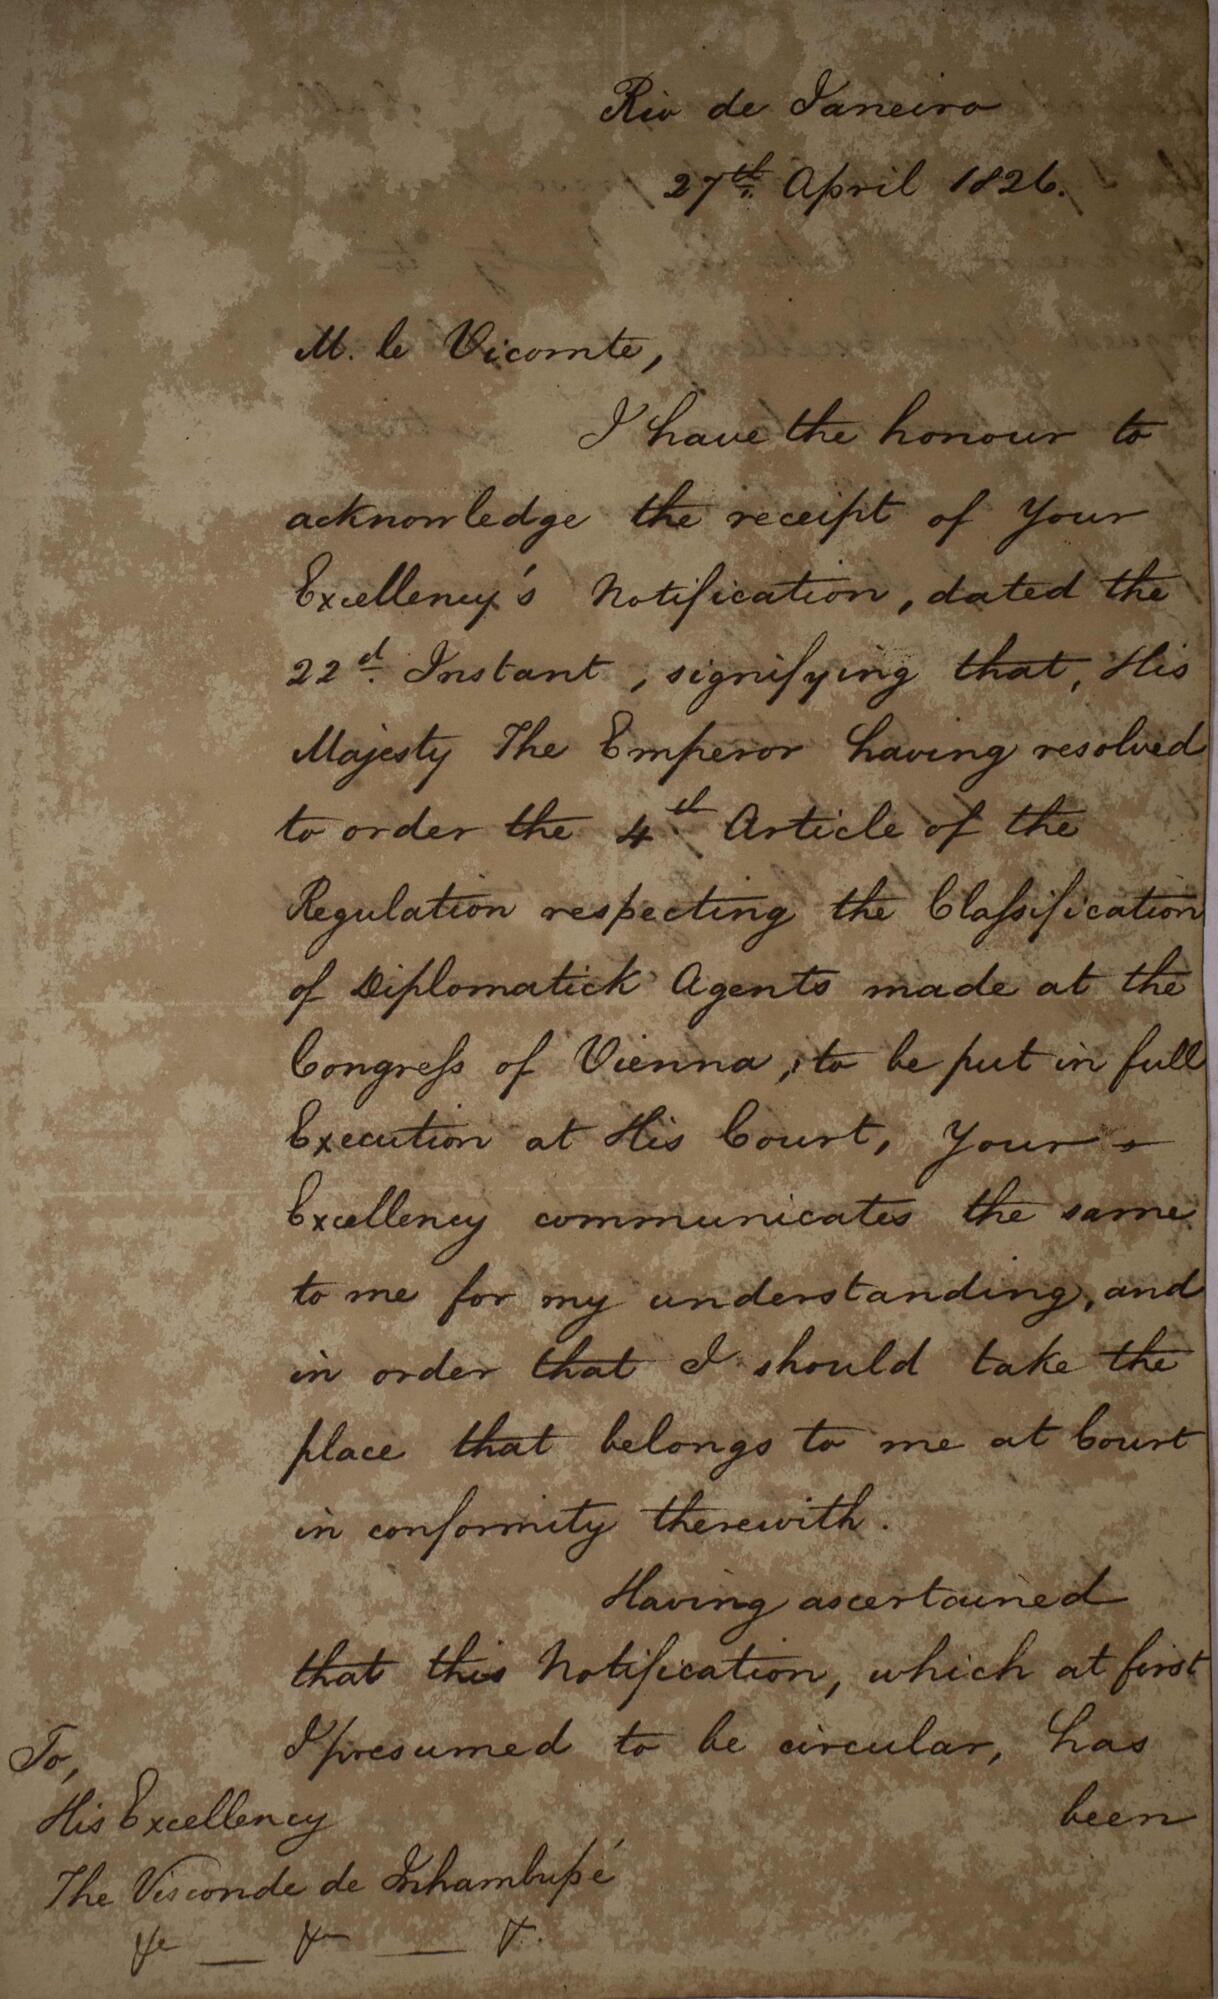 Rio de Janeiro
27th. April 1826.
M. le Vicomte,
I have the honour to
acknowledge the receipt of Your
Excellency's Notification, dated the
22d. Instant, signifying that, His
Majesty The Emperor having resolved
to order the 4th Article of the
Regulation respecting the Claſsification
of Diplomatick Agents made at the
Congreſs of Vienna, to be put in full
Execution at His Court, Your
Excellency communicates the same
to me for my understanding, and
in order that I should take the
place that belongs to me at Court
in conformity therewith.
Having ascertained
that this Notification, which at first
I presumed to be circular, has
been
To,
His Excellency
The Visconde de Inhambupé
&c — &c — &.